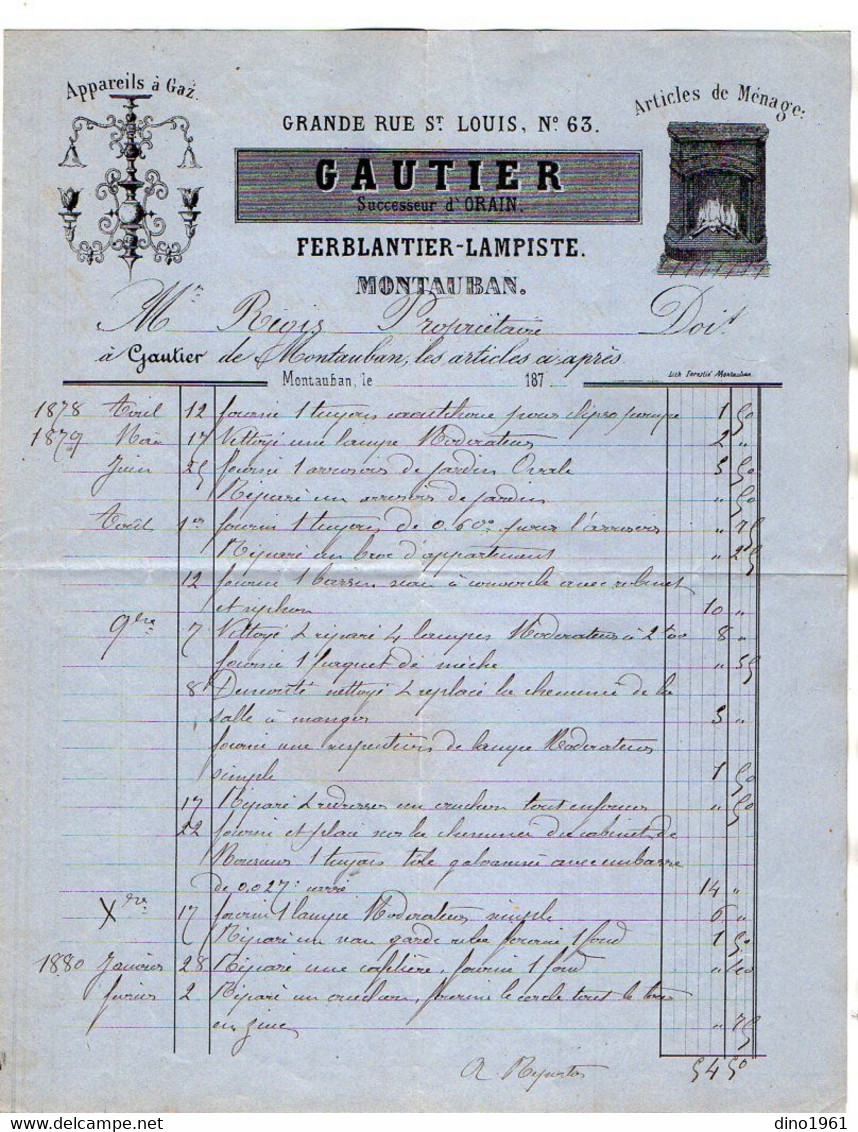 Appareils à Gaz.
Articles de Ménage.
GRANDE RUE ST. LOUIS, No. 63.
GAUTIER
Successeur d'ORAIN.
FERBLANTIER-LAMPISTE.
MONTAUBAN.
Mr. Régis Propriétaire Doit
à Gautier de Montauban, les articles ci-après
Montauban, le 187
Lith Forestié Montauban.
1878 Avril 12 fourni 1 tuyau caoutchouc pour 1 50
1879 Mai 17 Nettoyé une lampe Modérateur 2 "
Juin 25 fourni 1 arrosoir de jardin Ovale 5 50
Réparé un arrosoir de jardin " 50
Août 1er fourni 1 tuyau de 0.60c pour l'arrosoir " 75
Réparé un broc d'appartement " 25
12 fourni 1 bassin à couvercle avec robinet
et syphon 10 "
9bre 7 Nettoyé & réparé 4 lampes Modérateur à 2 "00 8 "
fourni 1 paquet de mèche "
8 Démonté nettoyé & replacé la cheminée de la
salle à manger 3 "
fourni une de lampe Modérateur
simple 1 50
17 Réparé & redressé un cruchon tout enfoncé " 50
22 fourni et placé sur la cheminée du cabinet de
Monsieur 1 tuyau tôle galvanisée avec embarre
de 0.027c carré 14 "
Xbre 17 fourni 1 lampe Modérateur simple 6 "
Réparé un seau garde robe fourni 1 fond 1 50
1880 Janvier 28 Réparé une cafetière, fourni 1 fond "
février 2 Réparé un cruchon, fourni le cercle tout le tour
en zinc " 75
A Reporter 54 50
dino1961